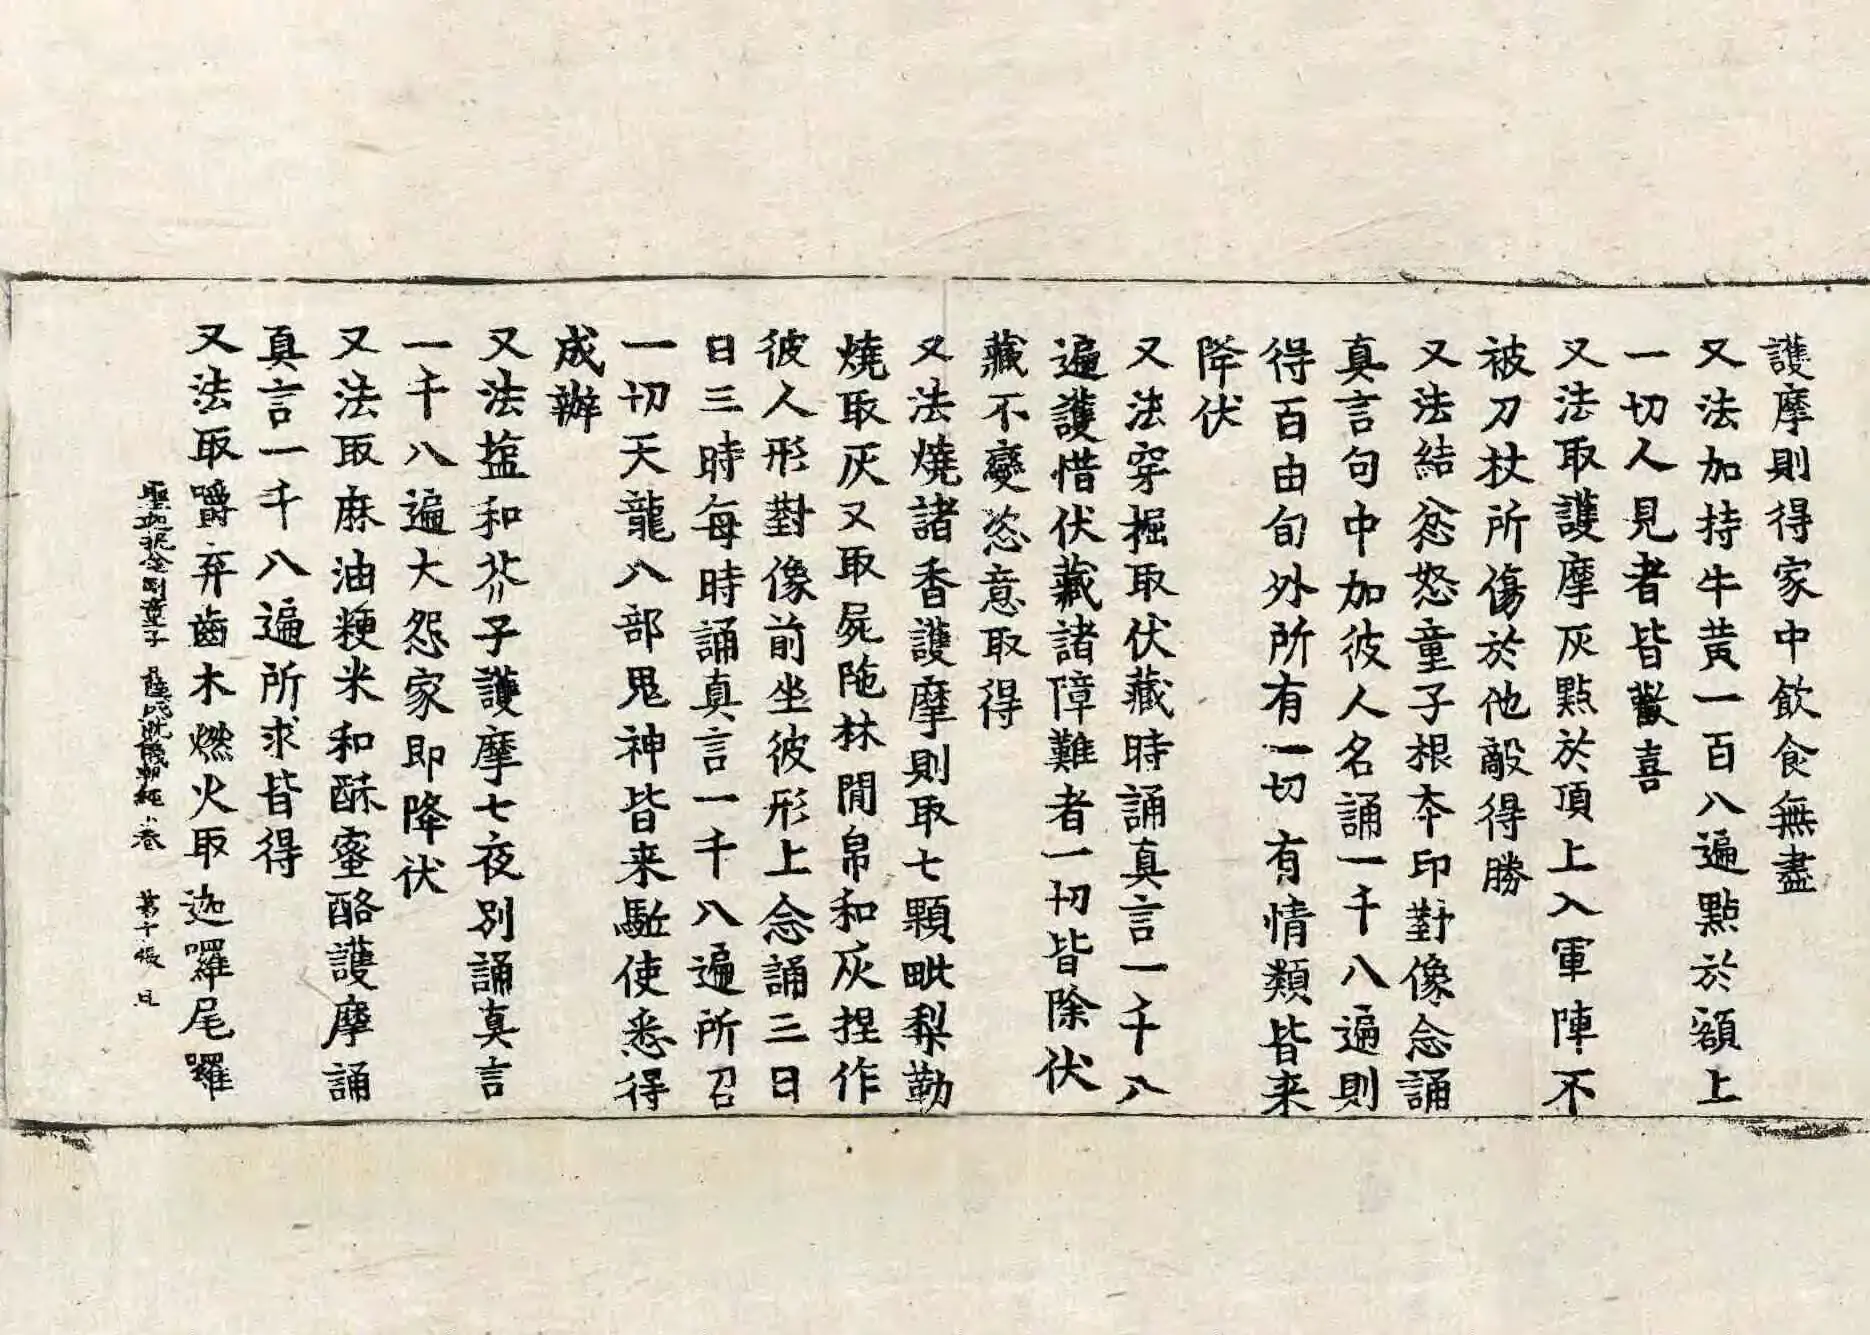 護摩則得家中飲食無盡
又法加持牛黄一百八遍點於額上
一切人見者皆歡喜
又法取護摩灰點於頂上入軍陣不
被刀杖所傷於他敵得勝
又法結忿怒童子根本印對像念誦
真言句中加彼人名誦一千八遍則
得百由旬外所有一切有情類皆来
降伏
又法穿掘取伏藏時誦真言一千八
遍護惜伏藏諸障難者一切皆除伏
藏不變恣意取得
又法燒諸香護摩則取七顆毗梨勒
燒取灰又取屍陁林閒帛和灰捏作
彼人形對像前坐彼形上念誦三日
日三時每時誦真言一千八遍所召
一切天龍八部鬼神皆来駈使悉得
成辦
又法塩和芥子護摩七夜別誦真言
一千八遍大怨家即降伏
又法取麻油粳米和酥蜜酪護摩誦
真言一千八遍所求皆得
又法取嚼弃齒木燃火取迦囉尾囉
金剛童子 成就儀軌經 卷 第十張